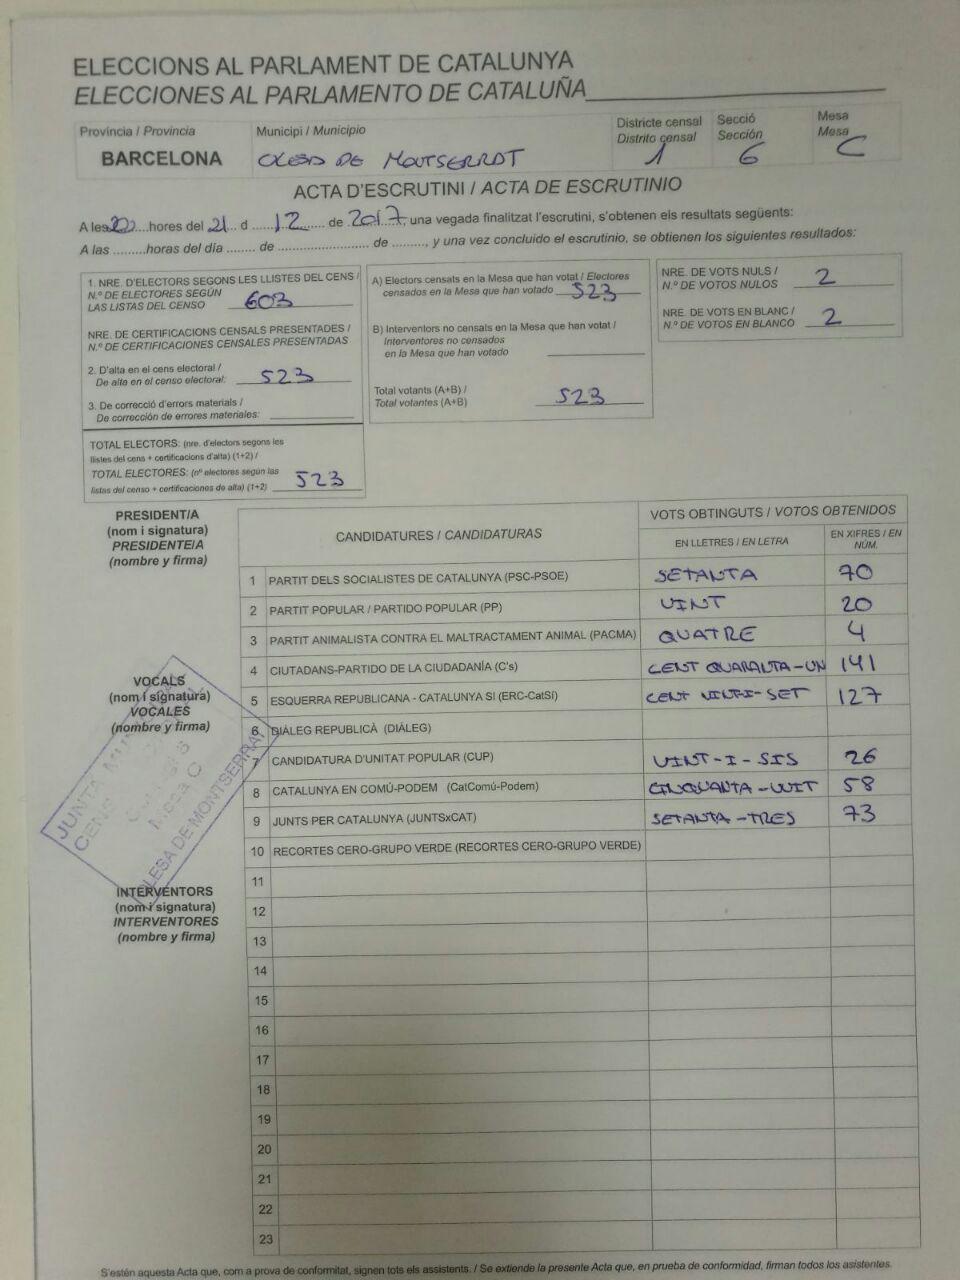 ELECCIONS AL PARLAMENT DE CATALUNYA
ELECCIONES AL PARLAMENTO DE CATALUÑA
Provincia / Provincia
BARCELONA
Municipi / Municipio
OLESA DE MONTSERRAT
Districte censal
Distrito censal
1
Secció
Sección
6
Mesa
Mesa
C
ACTA D'ESCRUTINI / ACTA DE ESCRUTINIO
A les 20 hores del 21 d 12 de 2017, una vegada finalitzat l'escrutini, s'obtenen els resultats següents:
A las .........horas del día ........ de ........................ de ........., y una vez concluido el escrutinio, se obtienen los siguientes resultados:
1. NRE. D'ELECTORS SEGONS LES LLISTES DEL CENS /
N.º DE ELECTORES SEGÚN
LAS LISTAS DEL CENSO 603
NRE. DE CERTIFICACIONS CENSALS PRESENTADES /
N.º DE CERTIFICACIONES CENSALES PRESENTADAS
2. D'alta en el cens electoral /
De alta en el censo electoral: 523
3. De correcció d'errors materials /
De corrección de errores materiales:
TOTAL ELECTORS: (nre. d'electors segons les
llistes del cens + certificacions d'alta) (1+2) /
TOTAL ELECTORES: (nº electores según las
listas del censo + certificaciones de alta) (1+2) 523
A) Electors censats en la Mesa que han votat / Electores
censados en la Mesa que han votado 523
B) Interventors no censats en la Mesa que han votat /
Interventores no censados
en la Mesa que han votado
Total votants (A+B) /
Total votantes (A+B) 523
NRE. DE VOTS NULS /
N.º DE VOTOS NULOS 2
NRE. DE VOTS EN BLANC /
N.º DE VOTOS EN BLANCO 2
PRESIDENT/A
(nom i signatura)
PRESIDENTE/A
(nombre y firma)
VOCALS
(nom i signatura)
VOCALES
(nombre y firma)
JUNTA
CENS
Mesa C
OLESA DE MONTSERRAT
INTERVENTORS
(nom i signatura)
INTERVENTORES
(nombre y firma)
CANDIDATURES / CANDIDATURAS
VOTS OBTINGUTS / VOTOS OBTENIDOS
EN LLETRES / EN LETRA
EN XIFRES / EN
NÚM.
1 PARTIT DELS SOCIALISTES DE CATALUNYA (PSC-PSOE) SETANTA 70
2 PARTIT POPULAR / PARTIDO POPULAR (PP) VINT 20
3 PARTIT ANIMALISTA CONTRA EL MALTRACTAMENT ANIMAL (PACMA) QUATRE 4
4 CIUTADANS-PARTIDO DE LA CIUDADANÍA (C's) CENT QUARANTA-UN 141
5 ESQUERRA REPUBLICANA - CATALUNYA SI (ERC-CatSí) CENT VINT-I-SET 127
6 DIÀLEG REPUBLICÀ (DIÀLEG)
7 CANDIDATURA D'UNITAT POPULAR (CUP) VINT-I-SIS 26
8 CATALUNYA EN COMÚ-PODEM (CatComú-Podem) CINQUANTA-VUIT 58
9 JUNTS PER CATALUNYA (JUNTSxCAT) SETANTA-TRES 73
10 RECORTES CERO-GRUPO VERDE (RECORTES CERO-GRUPO VERDE)
11
12
13
14
15
16
17
18
19
20
21
22
23
S'estén aquesta Acta que, com a prova de conformitat, signen tots els assistents. / Se extiende la presente Acta que, en prueba de conformidad, firman todos los asistentes.